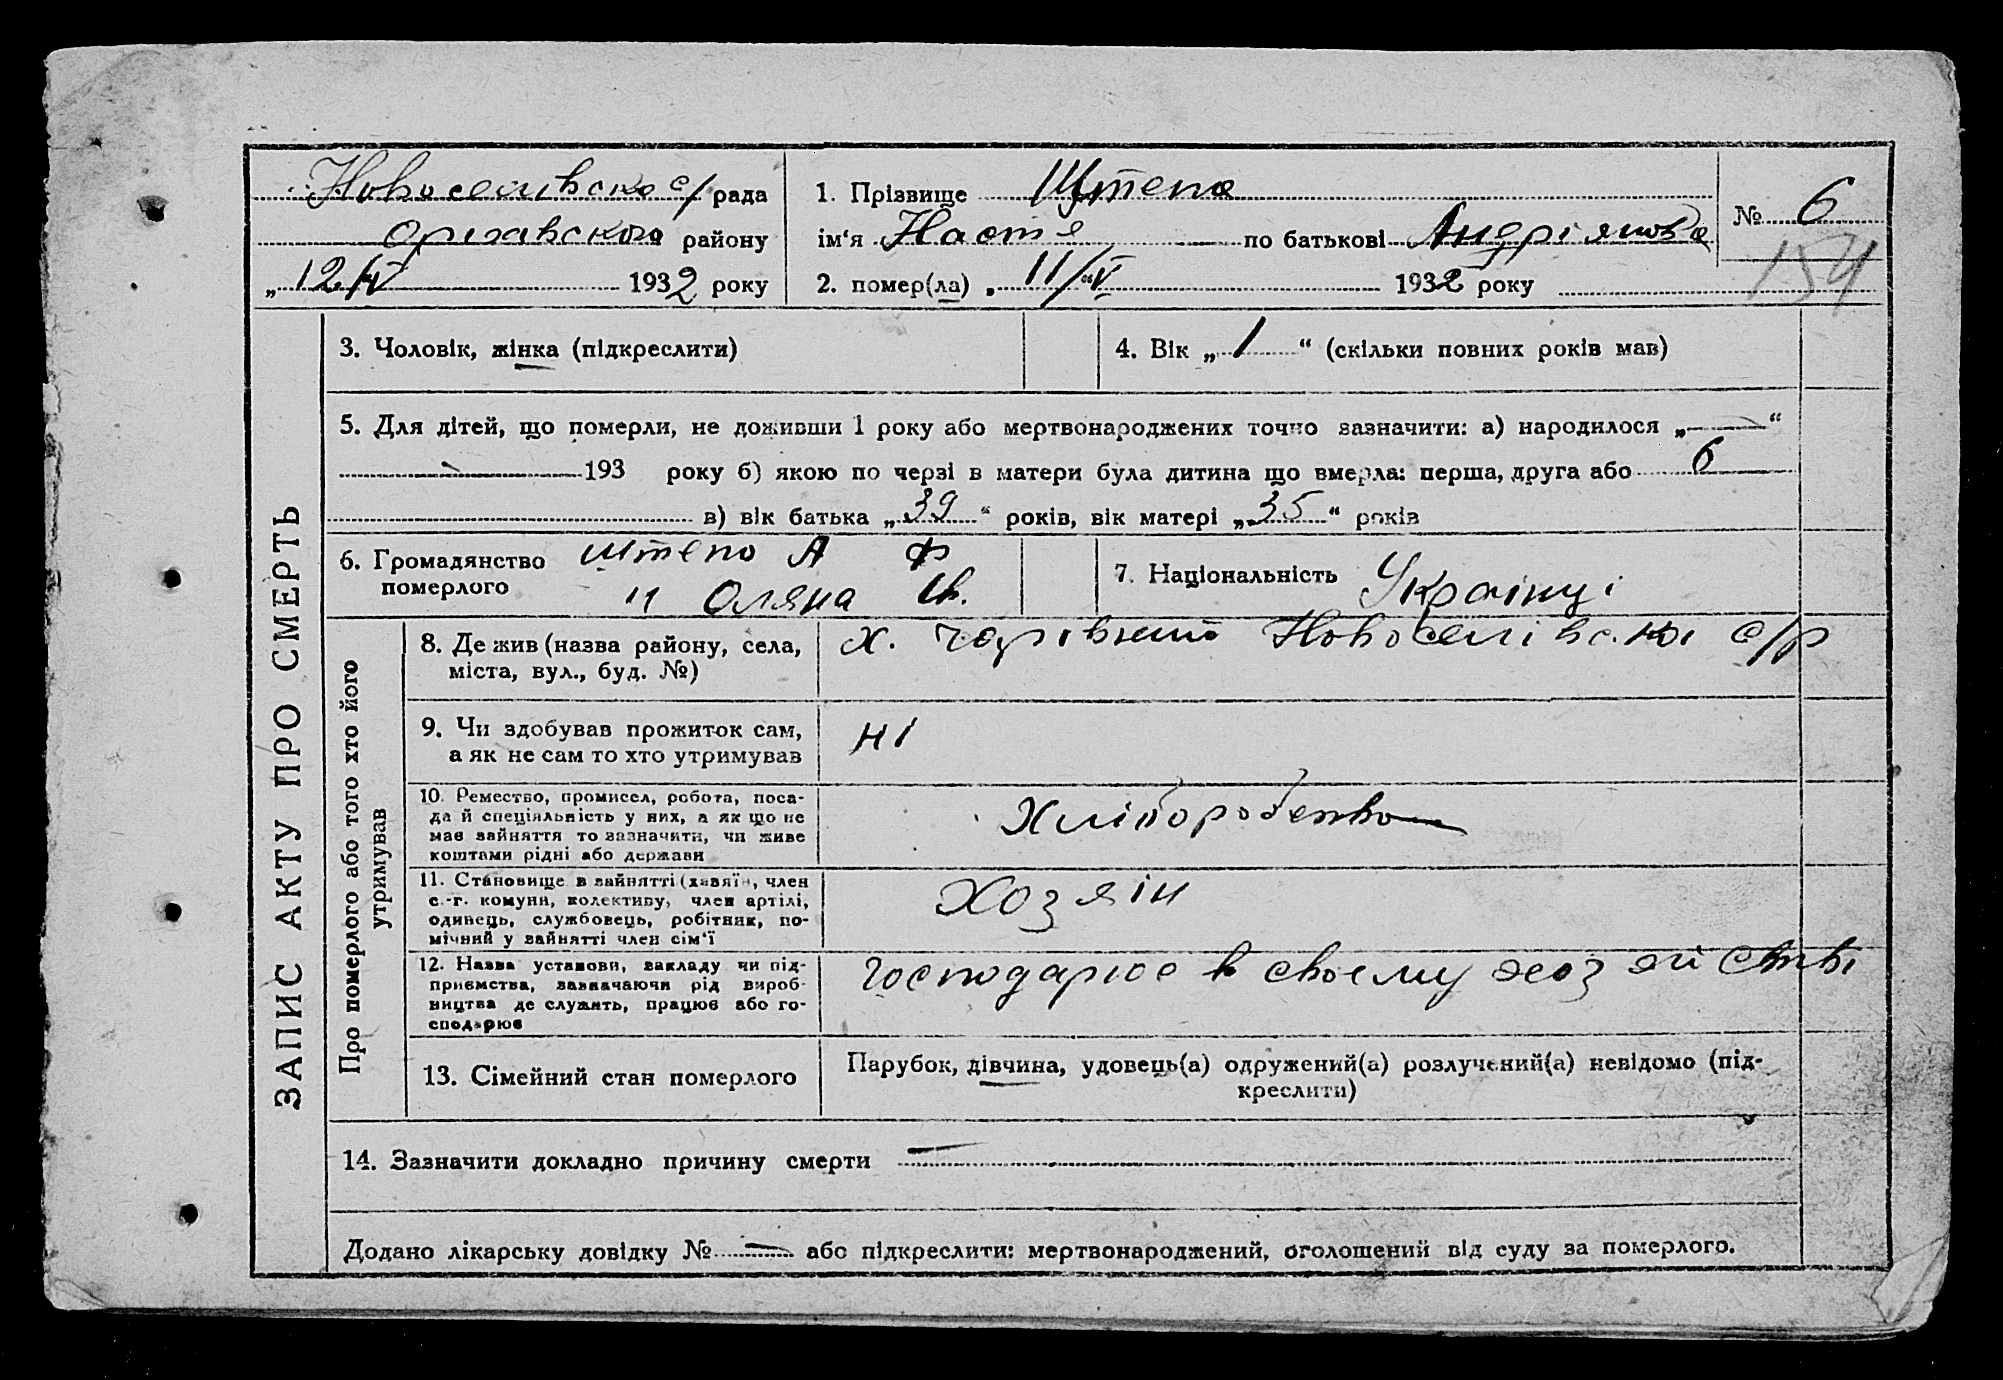 Новоселівська с/рада
Оржавського району
„ 12/IV 1932 року
1. Прізвище Штепа
ім‘я Настя по батькові Андріянова
2. помер(ла) „ 11/„V 1932 року
№ 6
154
ЗАПИС АКТУ ПРО СМЕРТЬ
3. Чоловік, жінка (підкреслити)
4. Вік „ 1 “ (скільки повних років мав)
5. Для дітей, що померли, не доживши 1 року або мертвонароджених точно зазначити: а) народилося „ — “
— 193 року б) якою по черзі в матери була дитина що вмерла: перша, друга або 6
в) вік батька „ 39 “ років, вік матері „ 35 “ років
6. Громадянство померлого
Штепо А Ф
" Оляна Ів.
7. Національність Українці
Про померлого або того хто його утримував
8. Де жив (назва району, села,
міста, вул., буд. №)
х. Новоселівської с/р
9. Чи здобував прожиток сам,
а як не сам то хто утримував
ні
10. Ремество, промисел, робота, поса-
да й спеціяльність у них, а як що не
має зайняття то зазначити, чи живе
коштами рідні або держави
Хліборобство
11. Становище в зайнятті (хазяїн, член
с.-г. комуни, колективу, член артілі,
одинець, службовець, робітник, по-
мічний у зайнятті член сім‘ї
Хозяін
12. Назва установи, закладу чи під-
приємства, зазначаючи рід вироб-
ництва де служить, працює або го-
сподарює
Господарює в своему хозяйстві
13. Сімейний стан померлого
Парубок, дівчина, удовець(а) одружений(а) розлучений(а) невідомо (під-
креслити)
14. Зазначити докладно причину смерти —
Додано лікарську довідку № — або підкреслити: мертвонароджений, оголошений від суду за померлого.